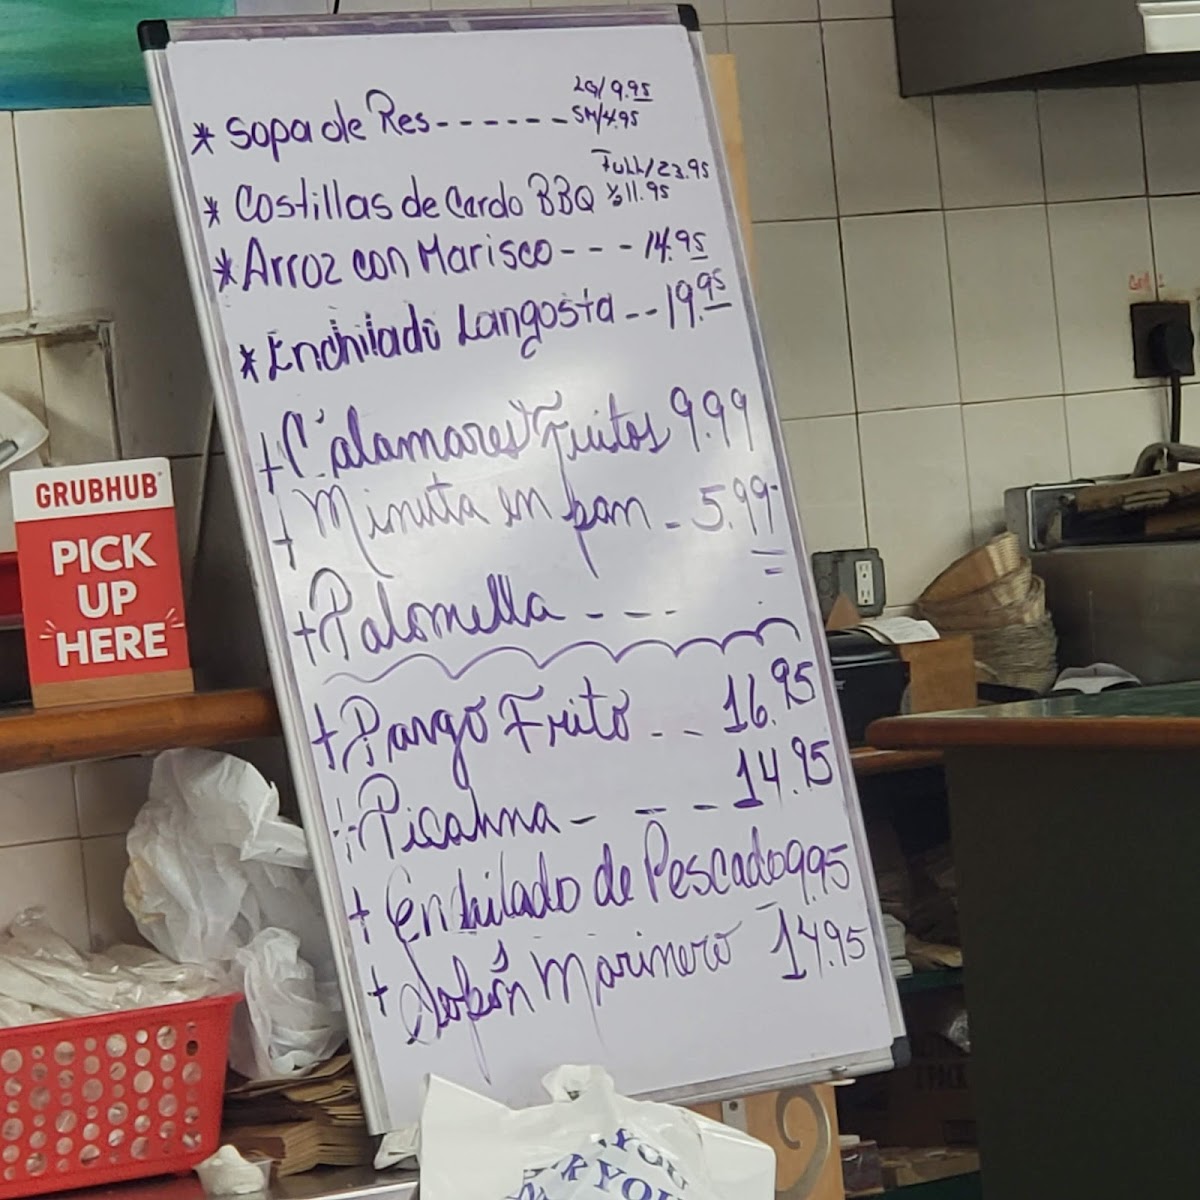 LG/9.95
* Sopa de Res ------ SM/4.95
Full/23.95
* Costillas de Cardo BBQ ½ 11.95
* Arroz con Marisco --- 14.95
* Enchilado Langosta -- 19.95
+ Calamares Fritos 9.99
+ Minuta en pan - 5.99
+ Palomella ---
+ Pargo Frito -- 16.95
+ Picahna - - - 14.95
+ Enchilado de Pescado 9.95
+ Marinero 14.95
GRUBHUB
PICK
UP
HERE
YOU
YOU